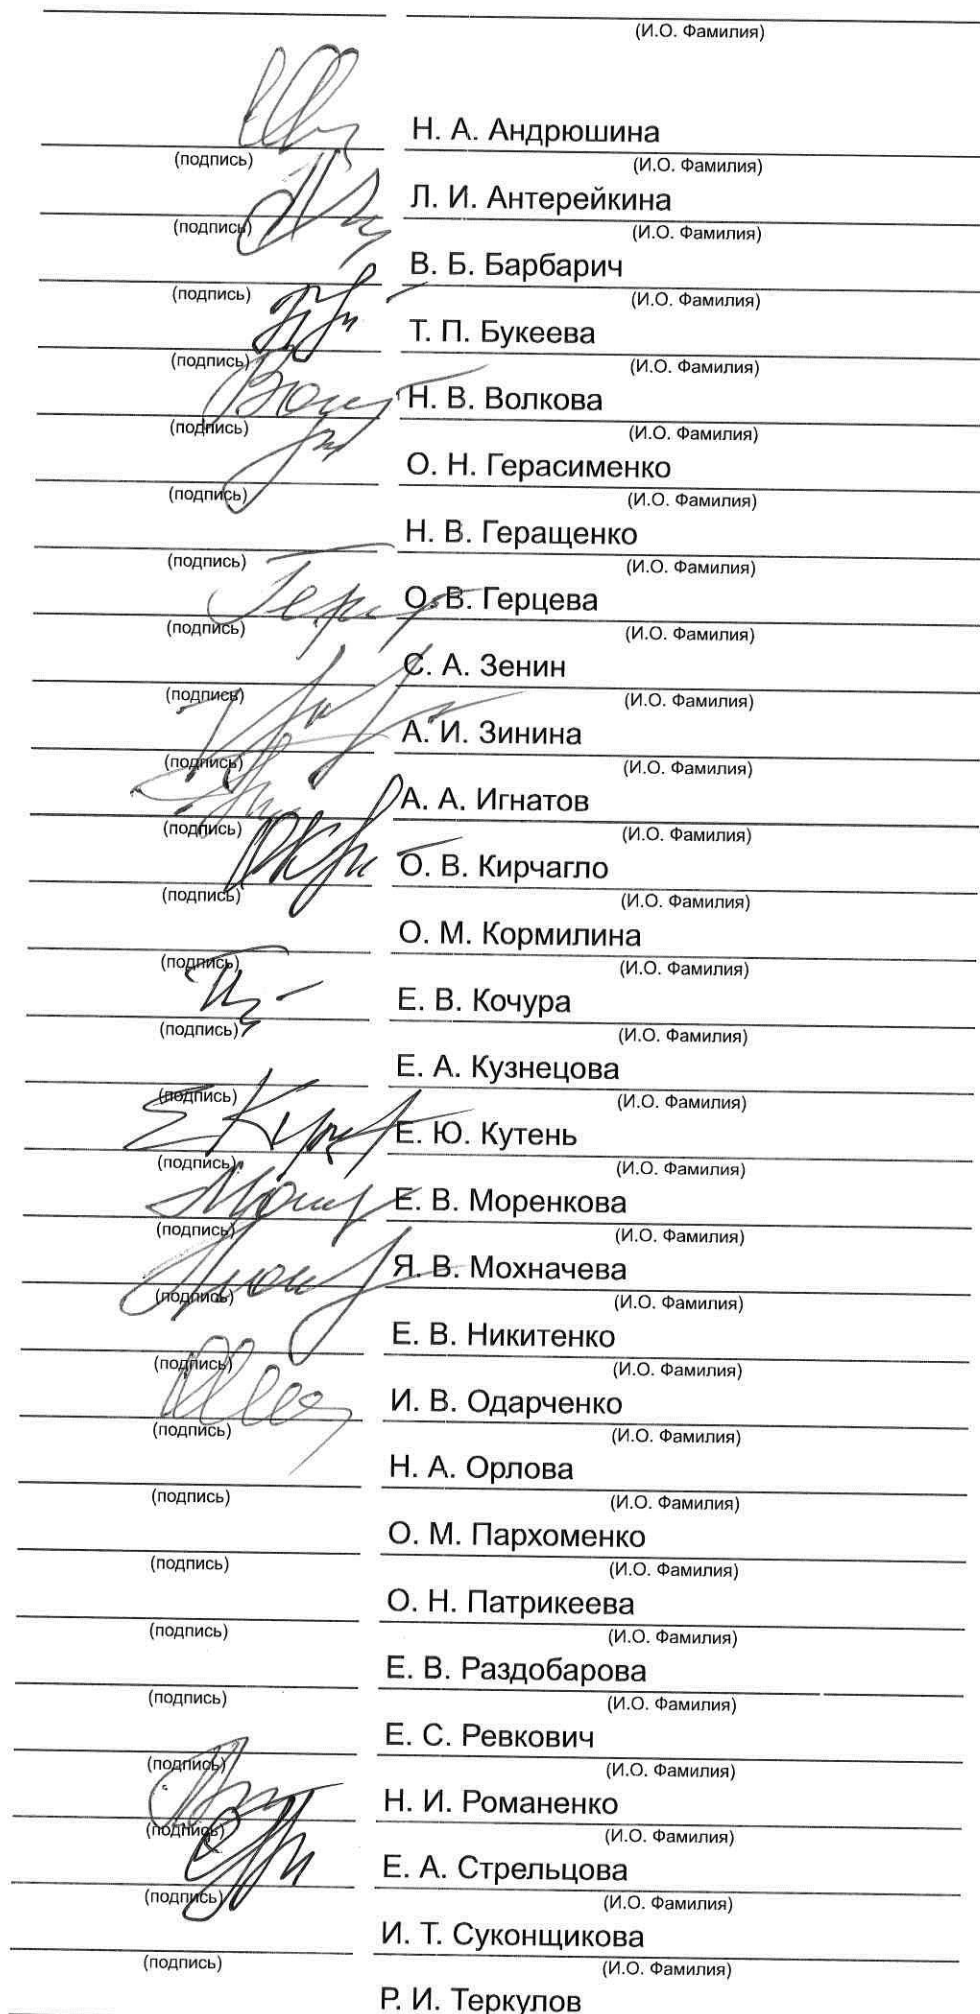 (И.О. Фамилия)
Н. А. Андрюшина
(подпись) (И.О. Фамилия)
Л. И. Антерейкина
(подпись) (И.О. Фамилия)
В. Б. Барбарич
(подпись) (И.О. Фамилия)
Т. П. Букеева
(подпись) (И.О. Фамилия)
Н. В. Волкова
(подпись) (И.О. Фамилия)
О. Н. Герасименко
(подпись) (И.О. Фамилия)
Н. В. Геращенко
(подпись) (И.О. Фамилия)
О. В. Герцева
(подпись) (И.О. Фамилия)
С. А. Зенин
(подпись) (И.О. Фамилия)
А. И. Зинина
(подпись) (И.О. Фамилия)
А. А. Игнатов
(подпись) (И.О. Фамилия)
О. В. Кирчагло
(подпись) (И.О. Фамилия)
О. М. Кормилина
(подпись) (И.О. Фамилия)
Е. В. Кочура
(подпись) (И.О. Фамилия)
Е. А. Кузнецова
(подпись) (И.О. Фамилия)
Е. Ю. Кутень
(подпись) (И.О. Фамилия)
Е. В. Моренкова
(подпись) (И.О. Фамилия)
Я. В. Мохначева
(подпись) (И.О. Фамилия)
Е. В. Никитенко
(подпись) (И.О. Фамилия)
И. В. Одарченко
(подпись) (И.О. Фамилия)
Н. А. Орлова
(подпись) (И.О. Фамилия)
О. М. Пархоменко
(подпись) (И.О. Фамилия)
О. Н. Патрикеева
(подпись) (И.О. Фамилия)
Е. В. Раздобарова
(подпись) (И.О. Фамилия)
Е. С. Ревкович
(подпись) (И.О. Фамилия)
Н. И. Романенко
(подпись) (И.О. Фамилия)
Е. А. Стрельцова
(подпись) (И.О. Фамилия)
И. Т. Суконщикова
(подпись) (И.О. Фамилия)
Р. И. Теркулов